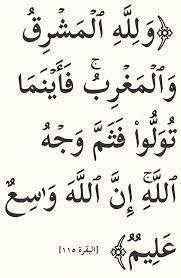 ﴿وَلِلَّهِ ٱلْمَشْرِقُ
وَٱلْمَغْرِبُۚ فَأَيْنَمَا
تُوَلُّوا۟ فَثَمَّ وَجْهُ
ٱللَّهِۚ إِنَّ ٱللَّهَ وَٰسِعٌ
عَلِيمٌ﴾ [البقرة ١١٥]